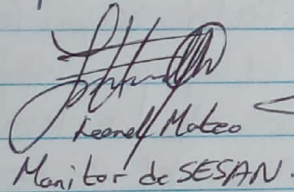 Leonel Mateo
Monitor de SESAN.